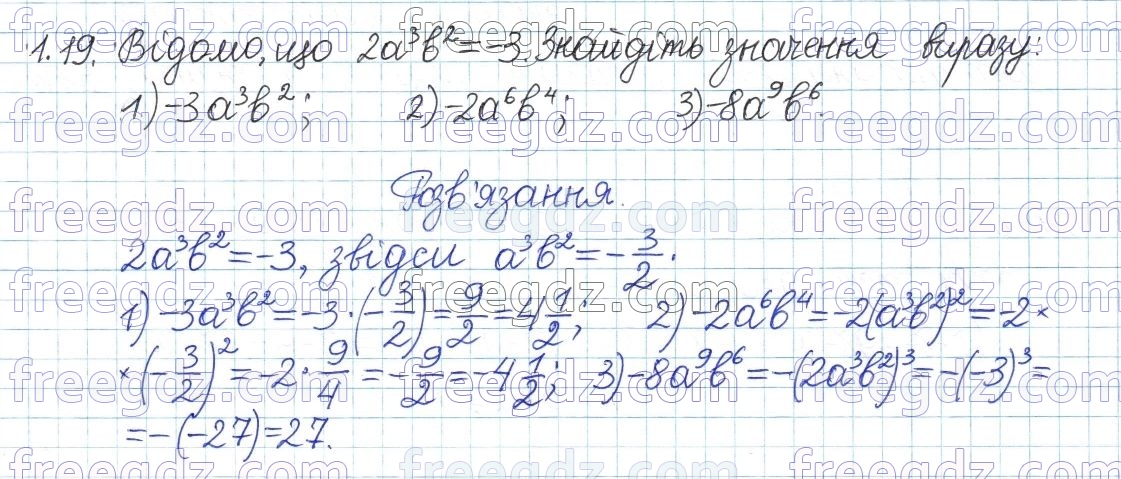 1.19. Відомо, що 2a³b² = -3. Знайдіть значення виразу:
1) -3a³b²; 2) -2a⁶b⁴; 3) -8a⁹b⁶.
Розв'язання.
2a³b² = -3, звідси a³b² = -3/2.
1) -3a³b² = -3·(-3/2) = 9/2 = 4 1/2; 2) -2a⁶b⁴ = -2(a³b²)² = -2×
×(-3/2)² = -2·9/4 = -9/2 = -4 1/2; 3) -8a⁹b⁶ = -(2a³b²)³ = -(-3)³ =
= -(-27) = 27.
freegdz.com